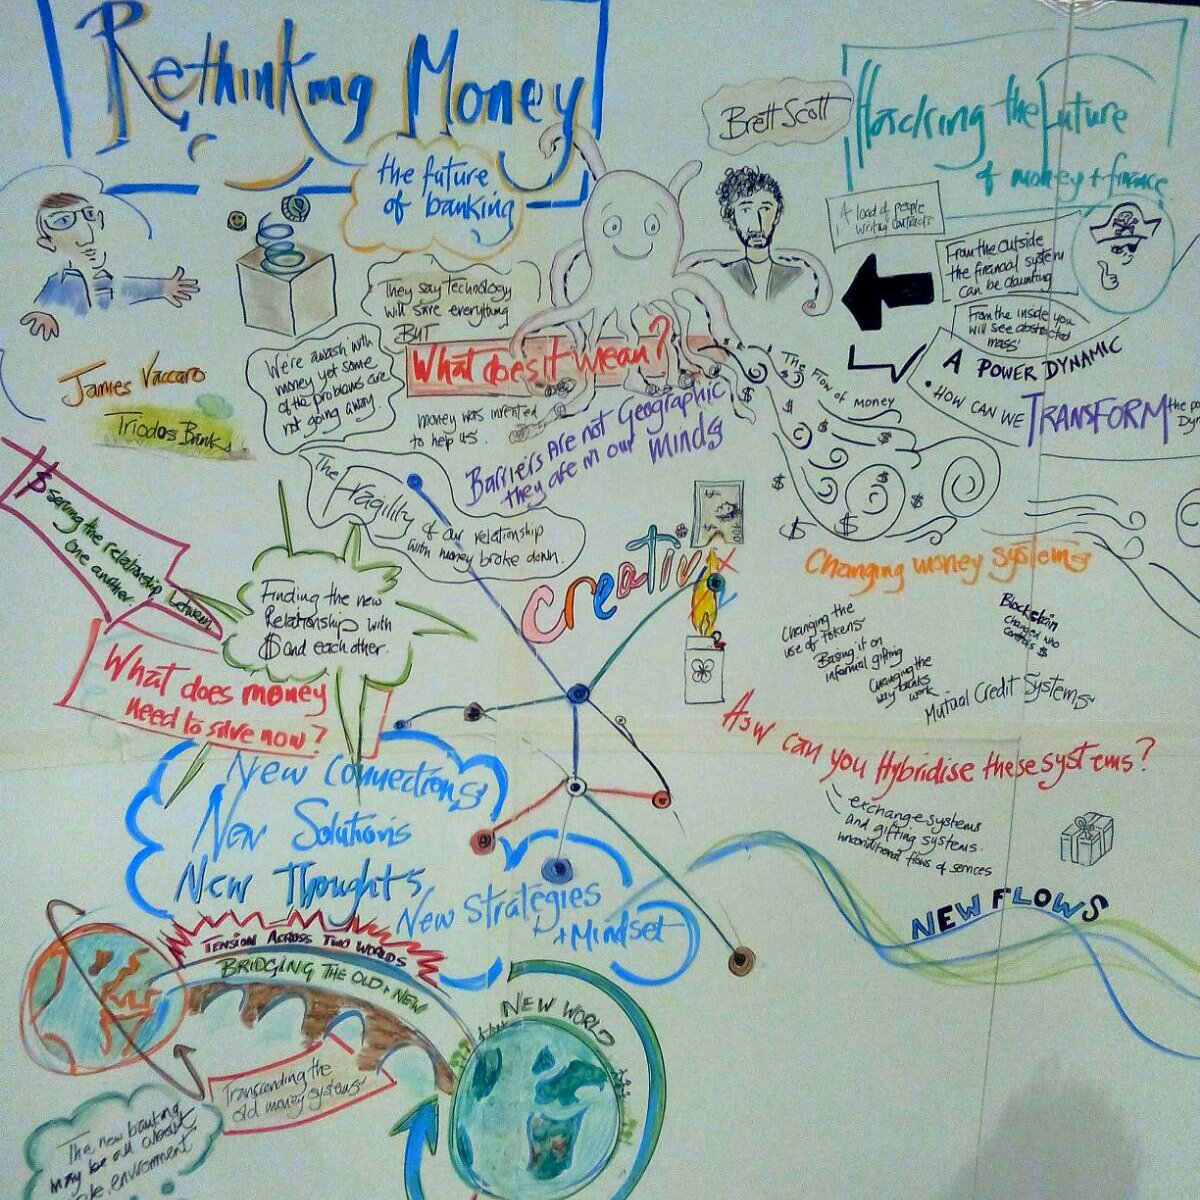 Rethinking Money
the future
of banking
James Vaccaro
Triodos Bank
They say technology
will save everything
BUT
What does it mean?
We're awash with
money yet some
of the problems are
not going away.
money was invented
to help us.
Barriers are not Geographic
they are in our minds
The Fragility of our relationship
with money broke down.
$ serving the relationship between
one another.
Finding the new
Relationship with
$ and each other.
What does money
need to solve now?
Creativ
New Connections
New Solutions
New Thoughts
New Strategies
+ Mindset
TENSION ACROSS TWO WORLDS
BRIDGING THE OLD + NEW
NEW WORLD
Transcending the
old money systems
The new banking
may be all about
environment
Brett Scott
Hacking the Future
of money + finance
A load of people
writing contracts
From the outside
the financial system
can be daunting
From the inside you
will see abstracted
mass
A POWER DYNAMIC
• HOW CAN WE TRANSFORM the
The Flow of Money
100
Changing money systems
Changing the
use of tokens
Basing it on
informal gifting
Changing the
way banks
work
Blockchain
Changed who
controls $
Mutual Credit Systems
How can you Hybridise these systems?
exchange systems
and gifting systems.
unconditional flows of services
NEW FLOWS